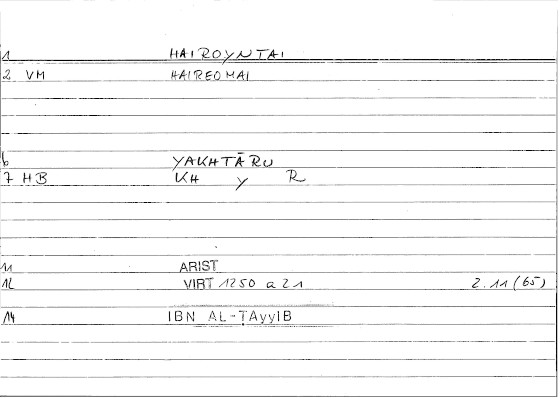 1 HAIROYNTAI
2 VM HAIREOMAI
6 YAKHTĀRU
7 HB KH y R
11 ARIST
12 VIRT 1250 a 21 2.11 (65)
14 IBN AL-ṬAyyIB